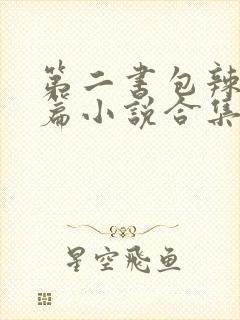 第二书包辣
篇小说合集
星空飛鱼